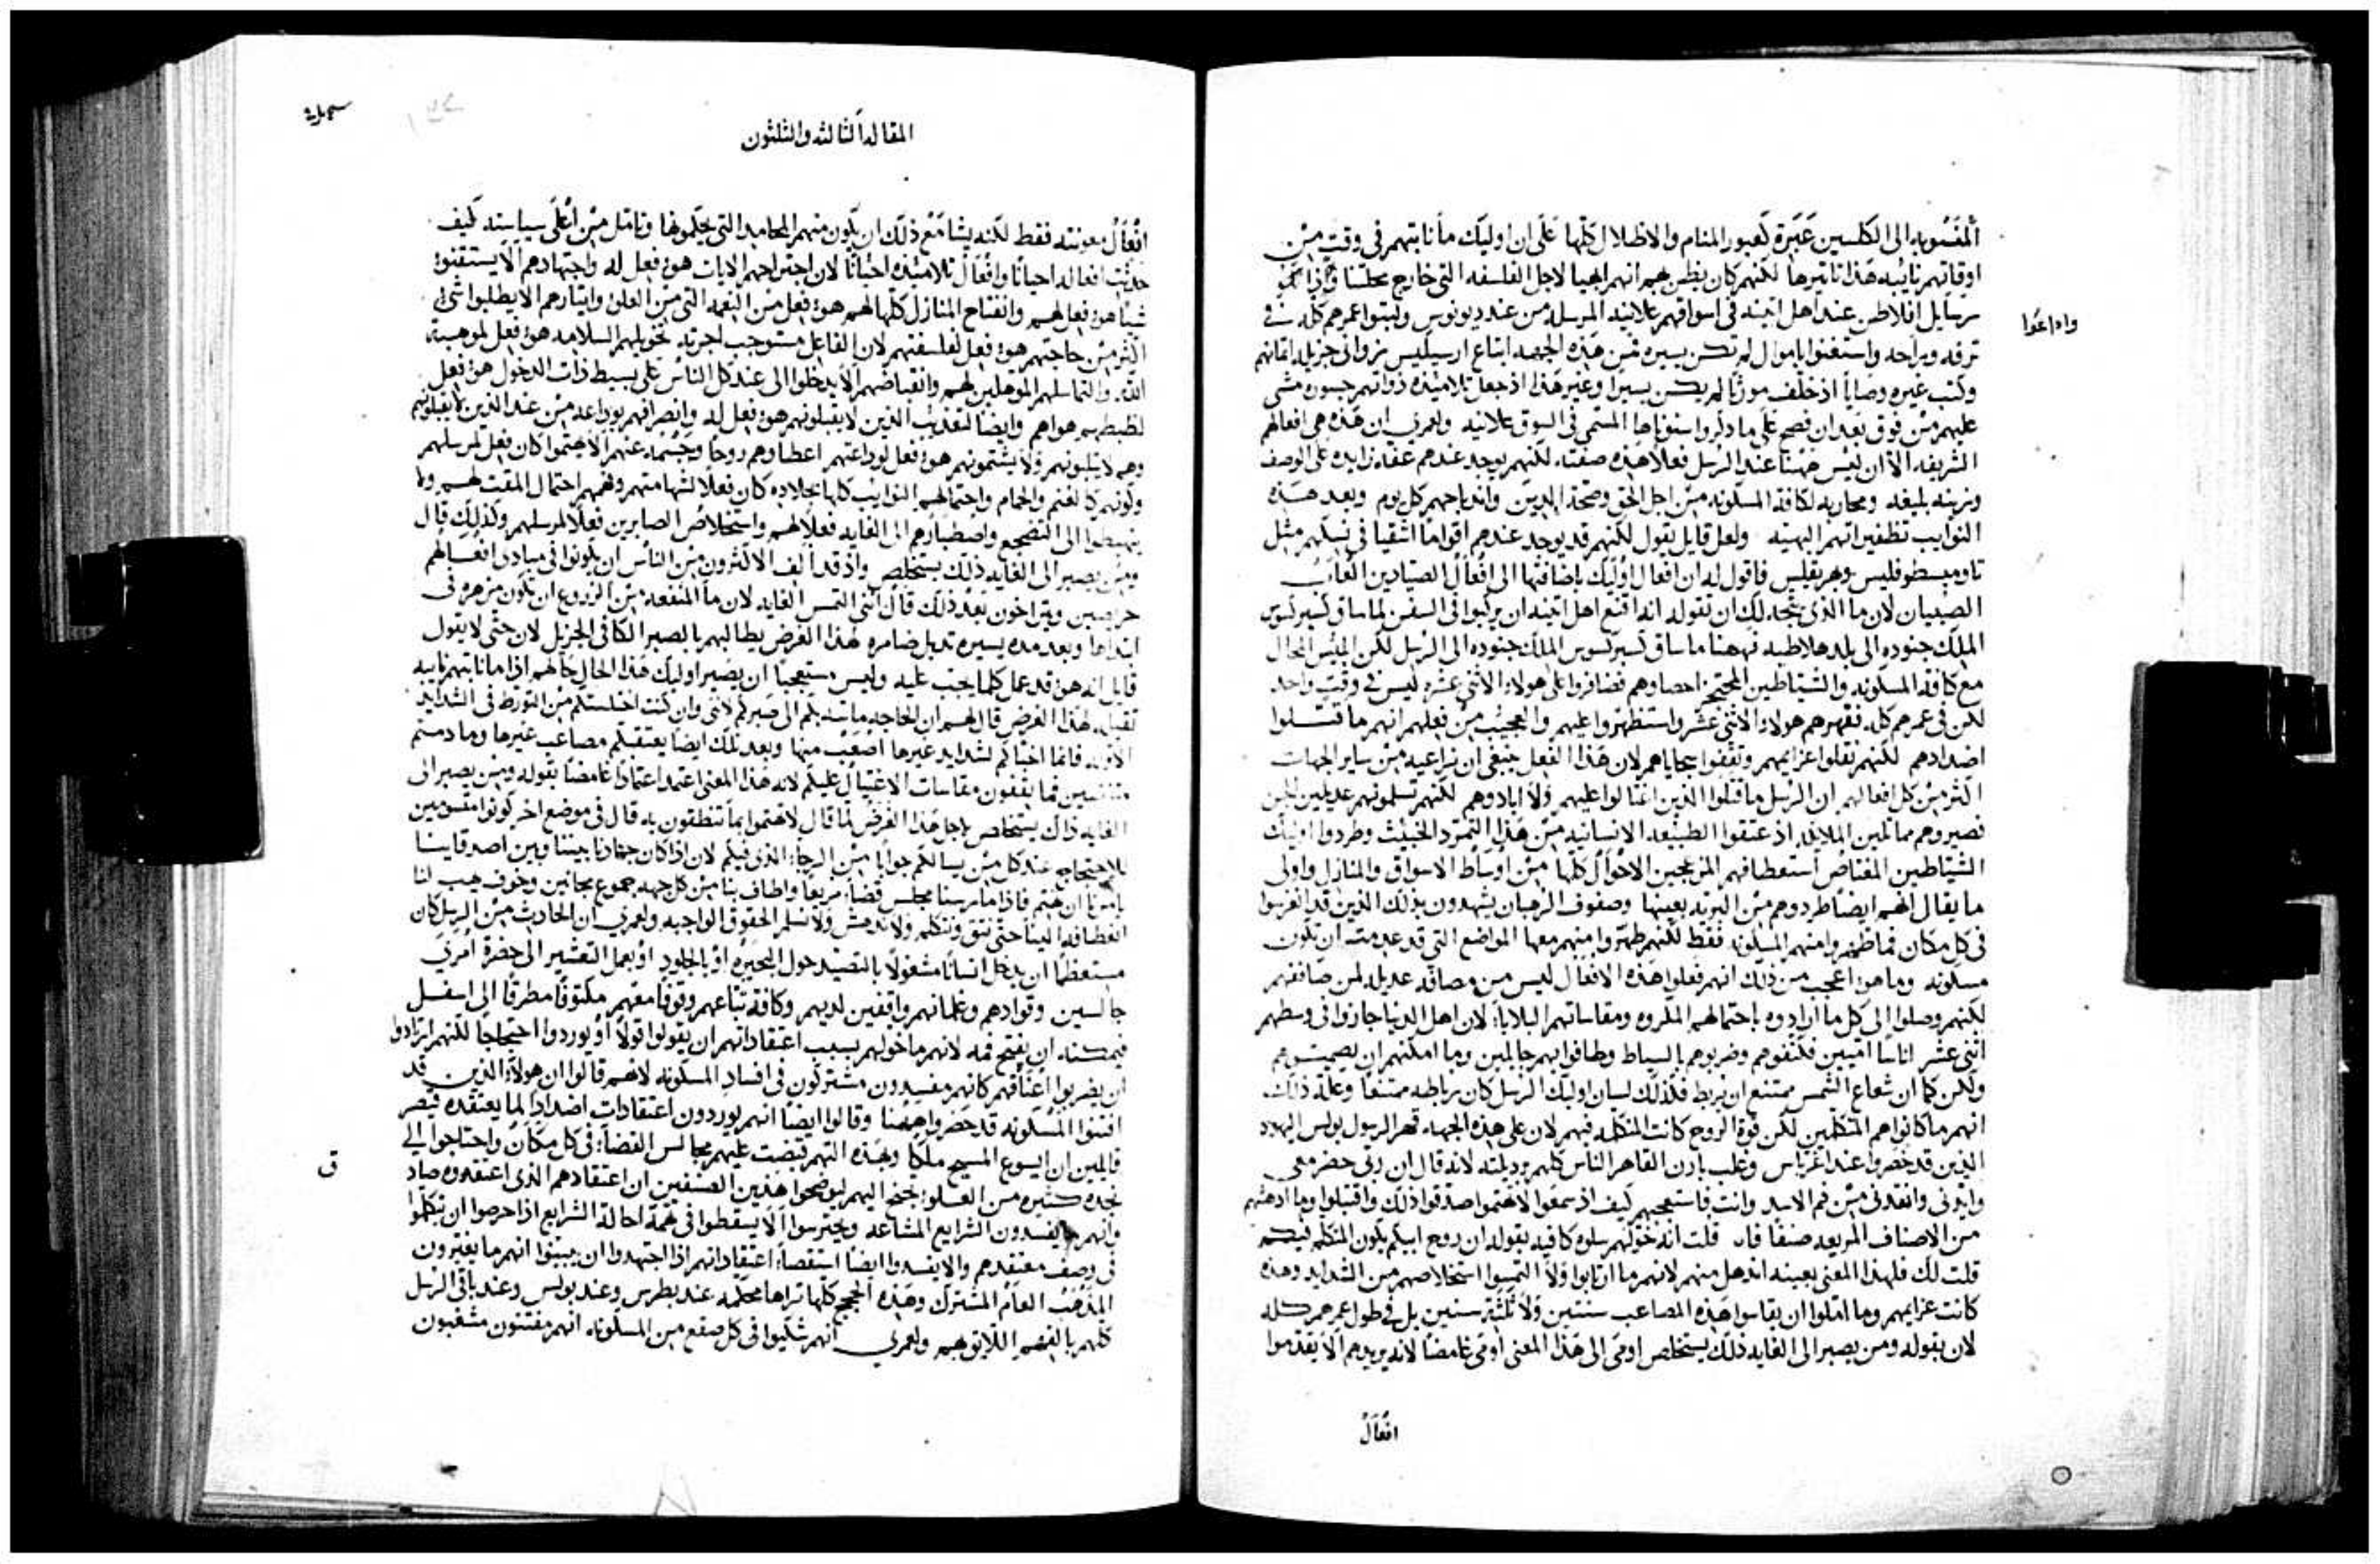 المنسوبه الى الكلسين عَبَرَة كعبور المنام والاظلال كلها عَلَى ان اوليك ما نابتهم فى وقت من
اوقاتهم نايبه هذا تاثيرها لكنهم كان يظن بهم انهم ابهيا لاجل الفلسفه التى خارج محلتنا
رسايل افلاطن عند اهل اثينه فى اسواقهم علانيه المرسله من عند ديونوسيوس ولبثوا عمرهم كله فى
واذاعُوا
ترفه وبراحه واستغنوا باموال لم تكن يسيره فمن هذه الجهه ابتاع ارسيبس زوانى جزيله اثمانهن
وكتب غيره وصايا اذ خلف مورثًا لم يكن يسيرًا وغير هذا اذ جعل تلاميذه ذواتهم جسوره مشى
عليهم من فوق بعد ان فصح على ما ذكروا سنوناها المسمى فى السوق علانيه ولعمرى ان هذه هى افعالهم
الشريفه الا ان ليس ههنا عند الرسل فعلاً هذه صفته لكنهم يوجد عندهم عفه زايده على الوصف
وزينه بليغه ومحاربه لكافة المسكونه من اجل الحق وصحة الدين واندباحهم كل يوم وبعد هذه
النوايب تظفيراتهم البهيه ولعل قايل يقول لكنهم قد يوجد عندهم اقوامًا اتقيا فى نسكهم مثل
ثاوميسطوقليس وبريقليس فاقول له ان افعال اوليك باضافتها الى افعال الصيادين العاب
الصبيان لان ما الذى يتجه لك ان تقوله انه اقنع اهل اثينه ان يركبوا فى السفن لما ساق كسيركسوس
الملك جنوده الى بلد هلاطيه فههنا ما ساق كسيركسوس الملك جنوده الى الرسل لكن ابليس المحال
مع كافة المسكونه والشياطين المحتجز احصاوهم فضافروا على هولاء الاثنى عشره ليس فى وقت واحد
لكن فى عمرهم كله فقهرهم هولاء الاثنى عشر واستظهروا عليهم والعجيب من فعلهم انهم ما قتلوا
اضدادهم لكنهم نقلوا عزايمهم وثقفوا سجاياهم لان هذا الفعل ينبغى ان نراعيه من ساير الجهات
اكثر من كل افعالهم ان الرسل ما قتلوا الذين اغتالوا عليهم ولا ابادوهم لكنهم تسلموهم عديلين للجن
فصيروهم مماثلين الملايكه اذ عتقوا الطبيعه الانسانيه من هذا التمرد الخبيث وطردوا اوليك
الشياطين المغتاص استعطافهم المزعجين الاحوال كلها من اوساط الاسواق والمنازل واولى
ما يقال انهم ايضًا طردوهم من البريه بعينها وصفوف الرهبان يشهدون بذلك الذين قد انغرسوا
فى كل مكان فما طهروا منهم المسكونه فقط لكنهم طهروا منهم معها المواضع التى قد عدمت ان تكون
مسكونه وما هو اعجب من ذلك انهم فعلوا هذه الافعال ليس من مصافه عديله لمن صاففهم
لكنهم وصلوا الى كل ما ارادوه باحتمالهم المكروه ومقاساتهم البلايا لان اهل الدنيا حازوا فى وسطهم
اثنى عشر اناسًا اميين فكتفوهم وضربوهم بالسياط وطافوا بهم جالبين وما امكنهم ان يصمتوهم
ولكن كما ان شعاع الشمس ممتنع ان يُربط فكذلك لسان اوليك الرسل كان رباطه ممتنعًا وعلة ذلك
انهم ما كانوا هم المتكلمين لكن قوة الروح كانت المتكلمه فيهم لان على هذه الجهه قهر الرسول بولس اليهود
الذين قد حضروا عند اغرباس وغلب بارن القاهر الناس كلهم برديلته لانه قال ان ربى حضر معى
وايدنى وانقذنى من فم الاسد وانت فاستعجبهم كيف اذ سمعوا لا تهتموا صدقوا ذلك واقتبلوا وما ادهشهم
من الاصناف المريعه صنفًا فان قلت انه خولهم سلوه كافيه بقوله ان روح ابيكم يكون المتكلم فيكم
قلت لك فلهذا المعنى بعينه اندهل منهم لانهم ما ارتابوا ولا التمسوا استخلاصهم من الشدايد وهذه
كانت عزايمهم وما املوا ان يقاسوا هذه المصاعب سنتين ولا ثلثة سنين بل فى طول عمرهم كله
لان بقوله ومن يصبر الى الغايه ذلك يستخلص اومى الى هذا المعنى اومى غامضًا لانه يريدهم الا يقدموا
افعَالُ
المقاله الثالثه والثلثون
افعَالُ معونته فقط لكنه يشا مع ذلك ان يكون منهم المحامد التى يحكمونها وتامل من اعلى سياسته كيف
حدثت افعاله احيانًا وافعال تلاميذه احيانًا لان اجتراحهم الايات هو فعل له واجتهادهم الا يستقنوا
شيًا هو فعل لهم وانفتاح المنازل كلها لهم هو فعل من النعمه التى من العلو وايثارهم الا يطلبوا شى
اكثر من حاجتهم هو فعل لفلسفتهم لان الفاعل مستوجب اجرته تخويلهم السلامه هو فعل لموهبة
الله والتماسهم الموهلين لهم وانقباضهم الا يدخلوا الى عند كل الناس على بسيط ذات الدخول هو فعل
لظبطهم هواهم وايضًا لتعذيب الذين لا يقبلونهم هو فعل له وانصرافهم بوداعه من عند الذين لا يقبلونهم
وهم لا يثلبونهم ولا يشتمونهم هو فعل لوداعتهم اعطاوهم روحًا وحسمه عنهم الاهتمام كان فعل لمرسلهم
وكونهم كالغنم والحمام واحتمالهم النوايب كلها بجلاده كان فعلًا لشهامتهم وفهمهم احتمال المقت لهم ولا
يهبطوا الى التضجع واصطبارهم الى الغايه فعلًا لهم واستخلاص الصابرين فعلًا لمرسلهم وكذلك قال
ومن يصبر الى الغايه ذلك يستخلص واذ قد الف الاكثرون من الناس ان يكونوا فى مبادى افعالهم
حريصين ويتراخون بعد ذلك قال اننى التمس الغايه لان ما المنفعه من الزروع ان تكون مزهره فى
ابتداها وبعد مده يسيره تذبل ضامره لهذا الغرض يطالبهم بالصبر الكافى الجزيل لان حتى لا يقول
قايل انه هو قد عمل كلما يجب عليه وليس مستعجبًا ان يصير اوليك هذا الحال حالهم اذا ما نابتهم نايبه
ثقيله لهذا الغرض قال لهم ان الحاجه ماسه بكم الى صبركم لاننى وان كنت اختلستكم من التورط فى الشدايد
الاوله فانما اخباكم لشدايد غيرها اصعب منها وبعد تلك ايضًا يعتقبكم مصاعب غيرها وما دمتم
متنفسين فما تقفون مقاسات الاغتيال عليكم لانه هذا المعنى اعتمد اعتمادًا غامضًا بقوله ومن يصبر الى
الغايه ذاك يستخلص لاجل هذا الغرض لما قال لا تهتموا بما تنطقون به قال فى موضع اخر كونوا مقسومين
للاحتجاج عند كل من يسالكم جوابًا من الرجاء الذى فيكم لان اذا كان جهادنا بيننا وبين اصدقاينا
يامرنا ان نهتم فاذا ما رسنا مجلس قضاء مريعًا واطاف بنا من كل جهه جموع مجانين وخوف يهب لنا
انعطافه الينا حتى نثق ونتكلم ولا ندهش ولا نسلم الحقوق الواجبه ولعمرى ان الحادث من الرسل كان
مستعظمًا ان يدخل انسانًا مشغولًا بالتصيد حول البحيره او بالجلود او بعمل التعشير الى حضرة امرى
جالسين وقوادهم وغلمانهم واقفين لديهم وكافة تباعهم وقوفًا معهم مكتوفًا مطرقًا الى اسفل
فيمكنه ان يفتح فمه لانهم ما خولهم بسبب اعتقاداتهم ان يقولوا قولًا او يوردوا احتجاجًا لكنهم ارادوا
ان يضربوا اعناقهم كانهم مفسدون مشتركون فى افساد المسكونه لانهم قالوا ان هولاء الذين قد
افتنوا المسكونه قد حضروا ههنا وقالوا ايضًا انهم يوردون اعتقادات اضدادًا لما يعتقده قيصر
قايلين ان ايسوع المسيح ملكًا وبهذه التهم قبضت عليهم مجالس القضاء فى كل مكان واحتاجوا الى
نجده كثيره من العلو تجنح اليهم ليوضحوا هذين الصنفين ان اعتقادهم الذى اعتقدوه صاد
ق
وانهم ما يفسدون الشرايع المشاعه ويحترسوا الا يسقطوا فى تهمة احالة الشرايع اذا حرصوا ان يتكلموا
فى وصف معتقدهم والا يفسدوا ايضًا استقصاء اعتقاداتهم اذا اجتهدوا ان يبينوا انهم ما يغيرون
المذهب العام المشترك وهذه الحجج كلها تراها محكمه عند بطرس وعند بولس وعند باقى الرسل
كلهم بالفهم اللايق بهم ولعمرى انهم شكيوا فى كل صقع من المسكونه انهم مفتنون مشغبون